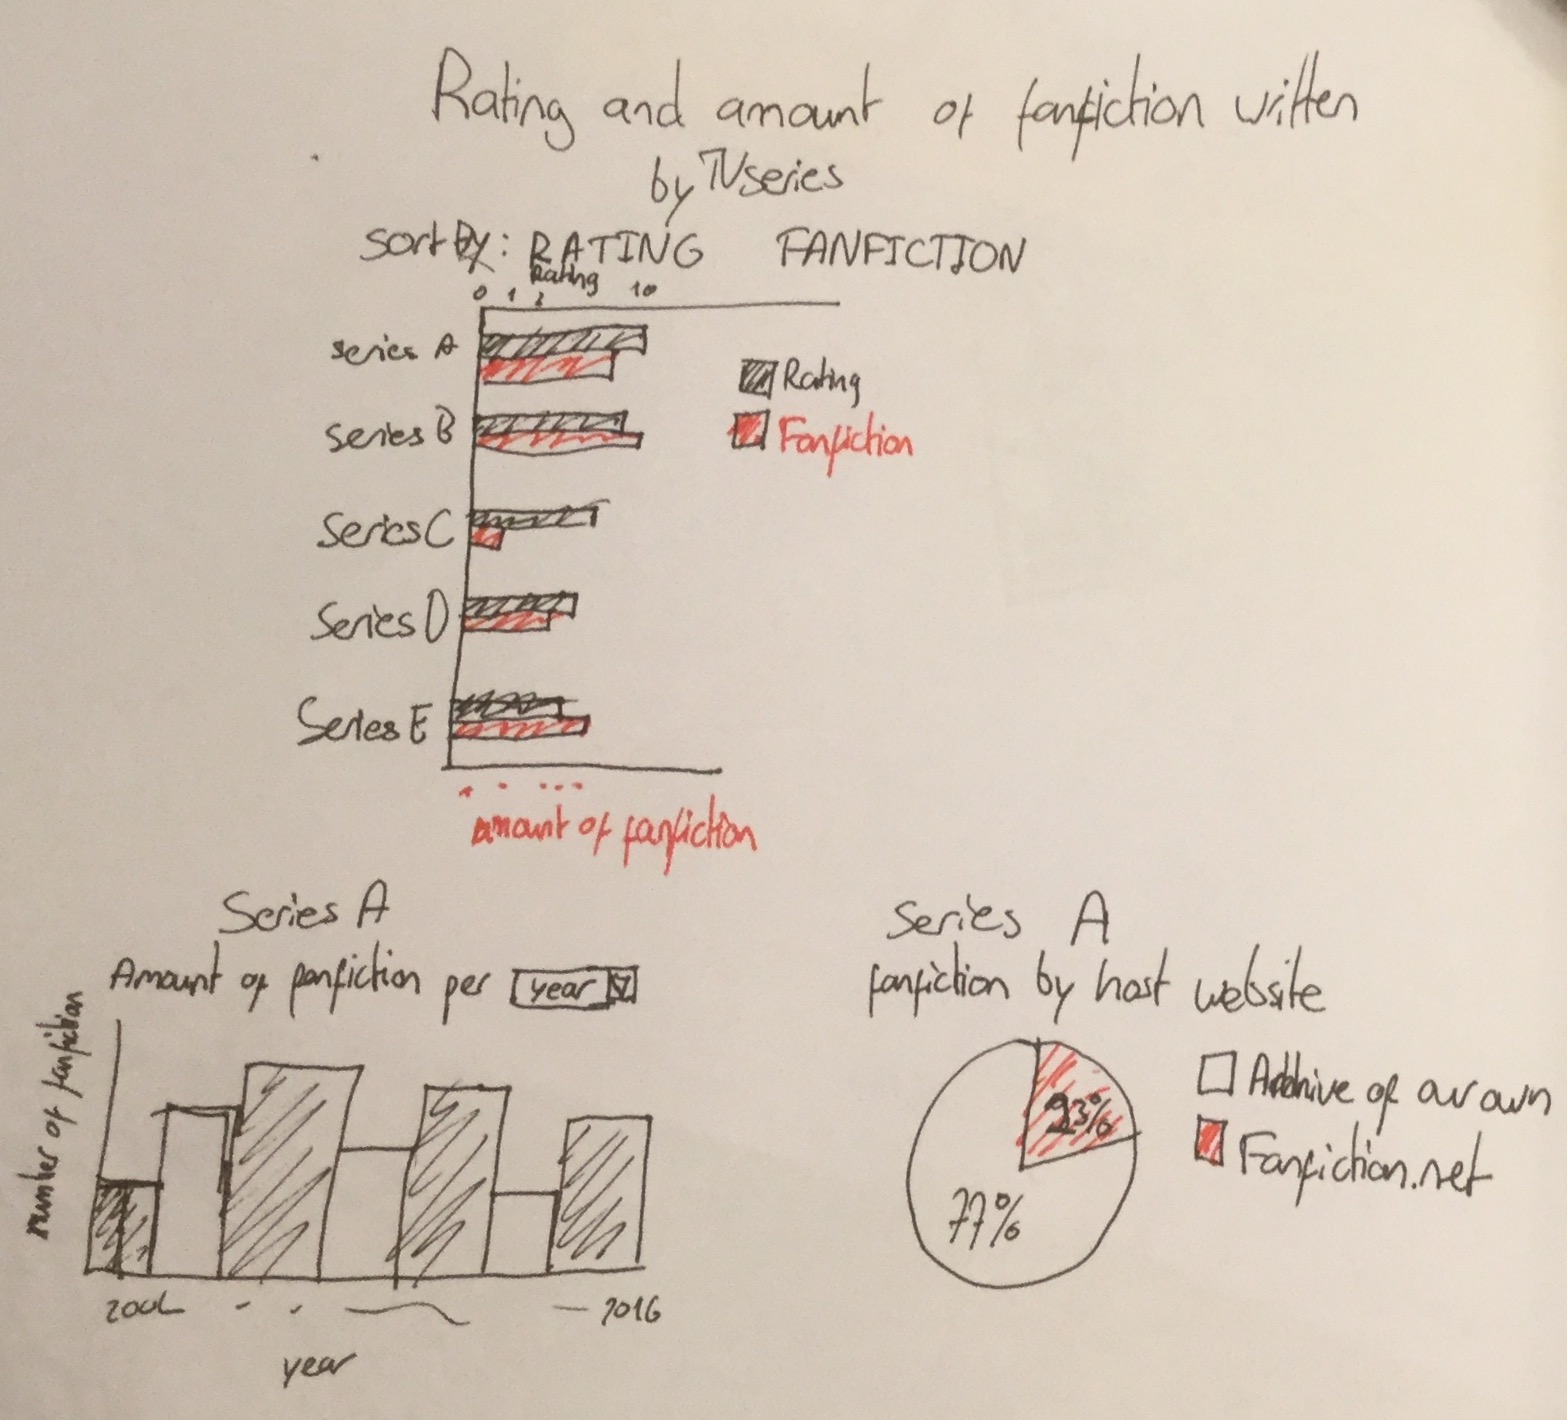 Rating and amount of fanfiction written
by TV series
Sort By: RATING FANFICTION
Rating
0 1 2 10
series A
Rating
Fanfiction
series B
Series C
Series D
Series E
amount of fanfiction
Series A
Amount of fanfiction per year
number of fanfiction
2016
year
Series A
fanfiction by host website
23%
77%
Archive of our own
Fanfiction.net